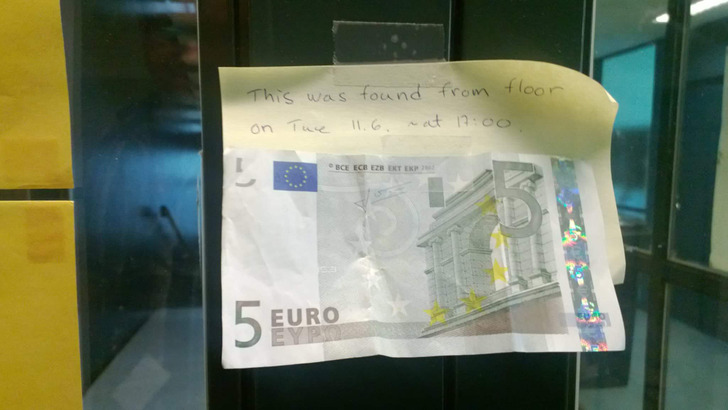 This was found from floor
on Tue 11.6. ~at 17:00.
© BCE ECB EZB EKT EKP 2002
5
5 EURO
ΕΥΡΩ